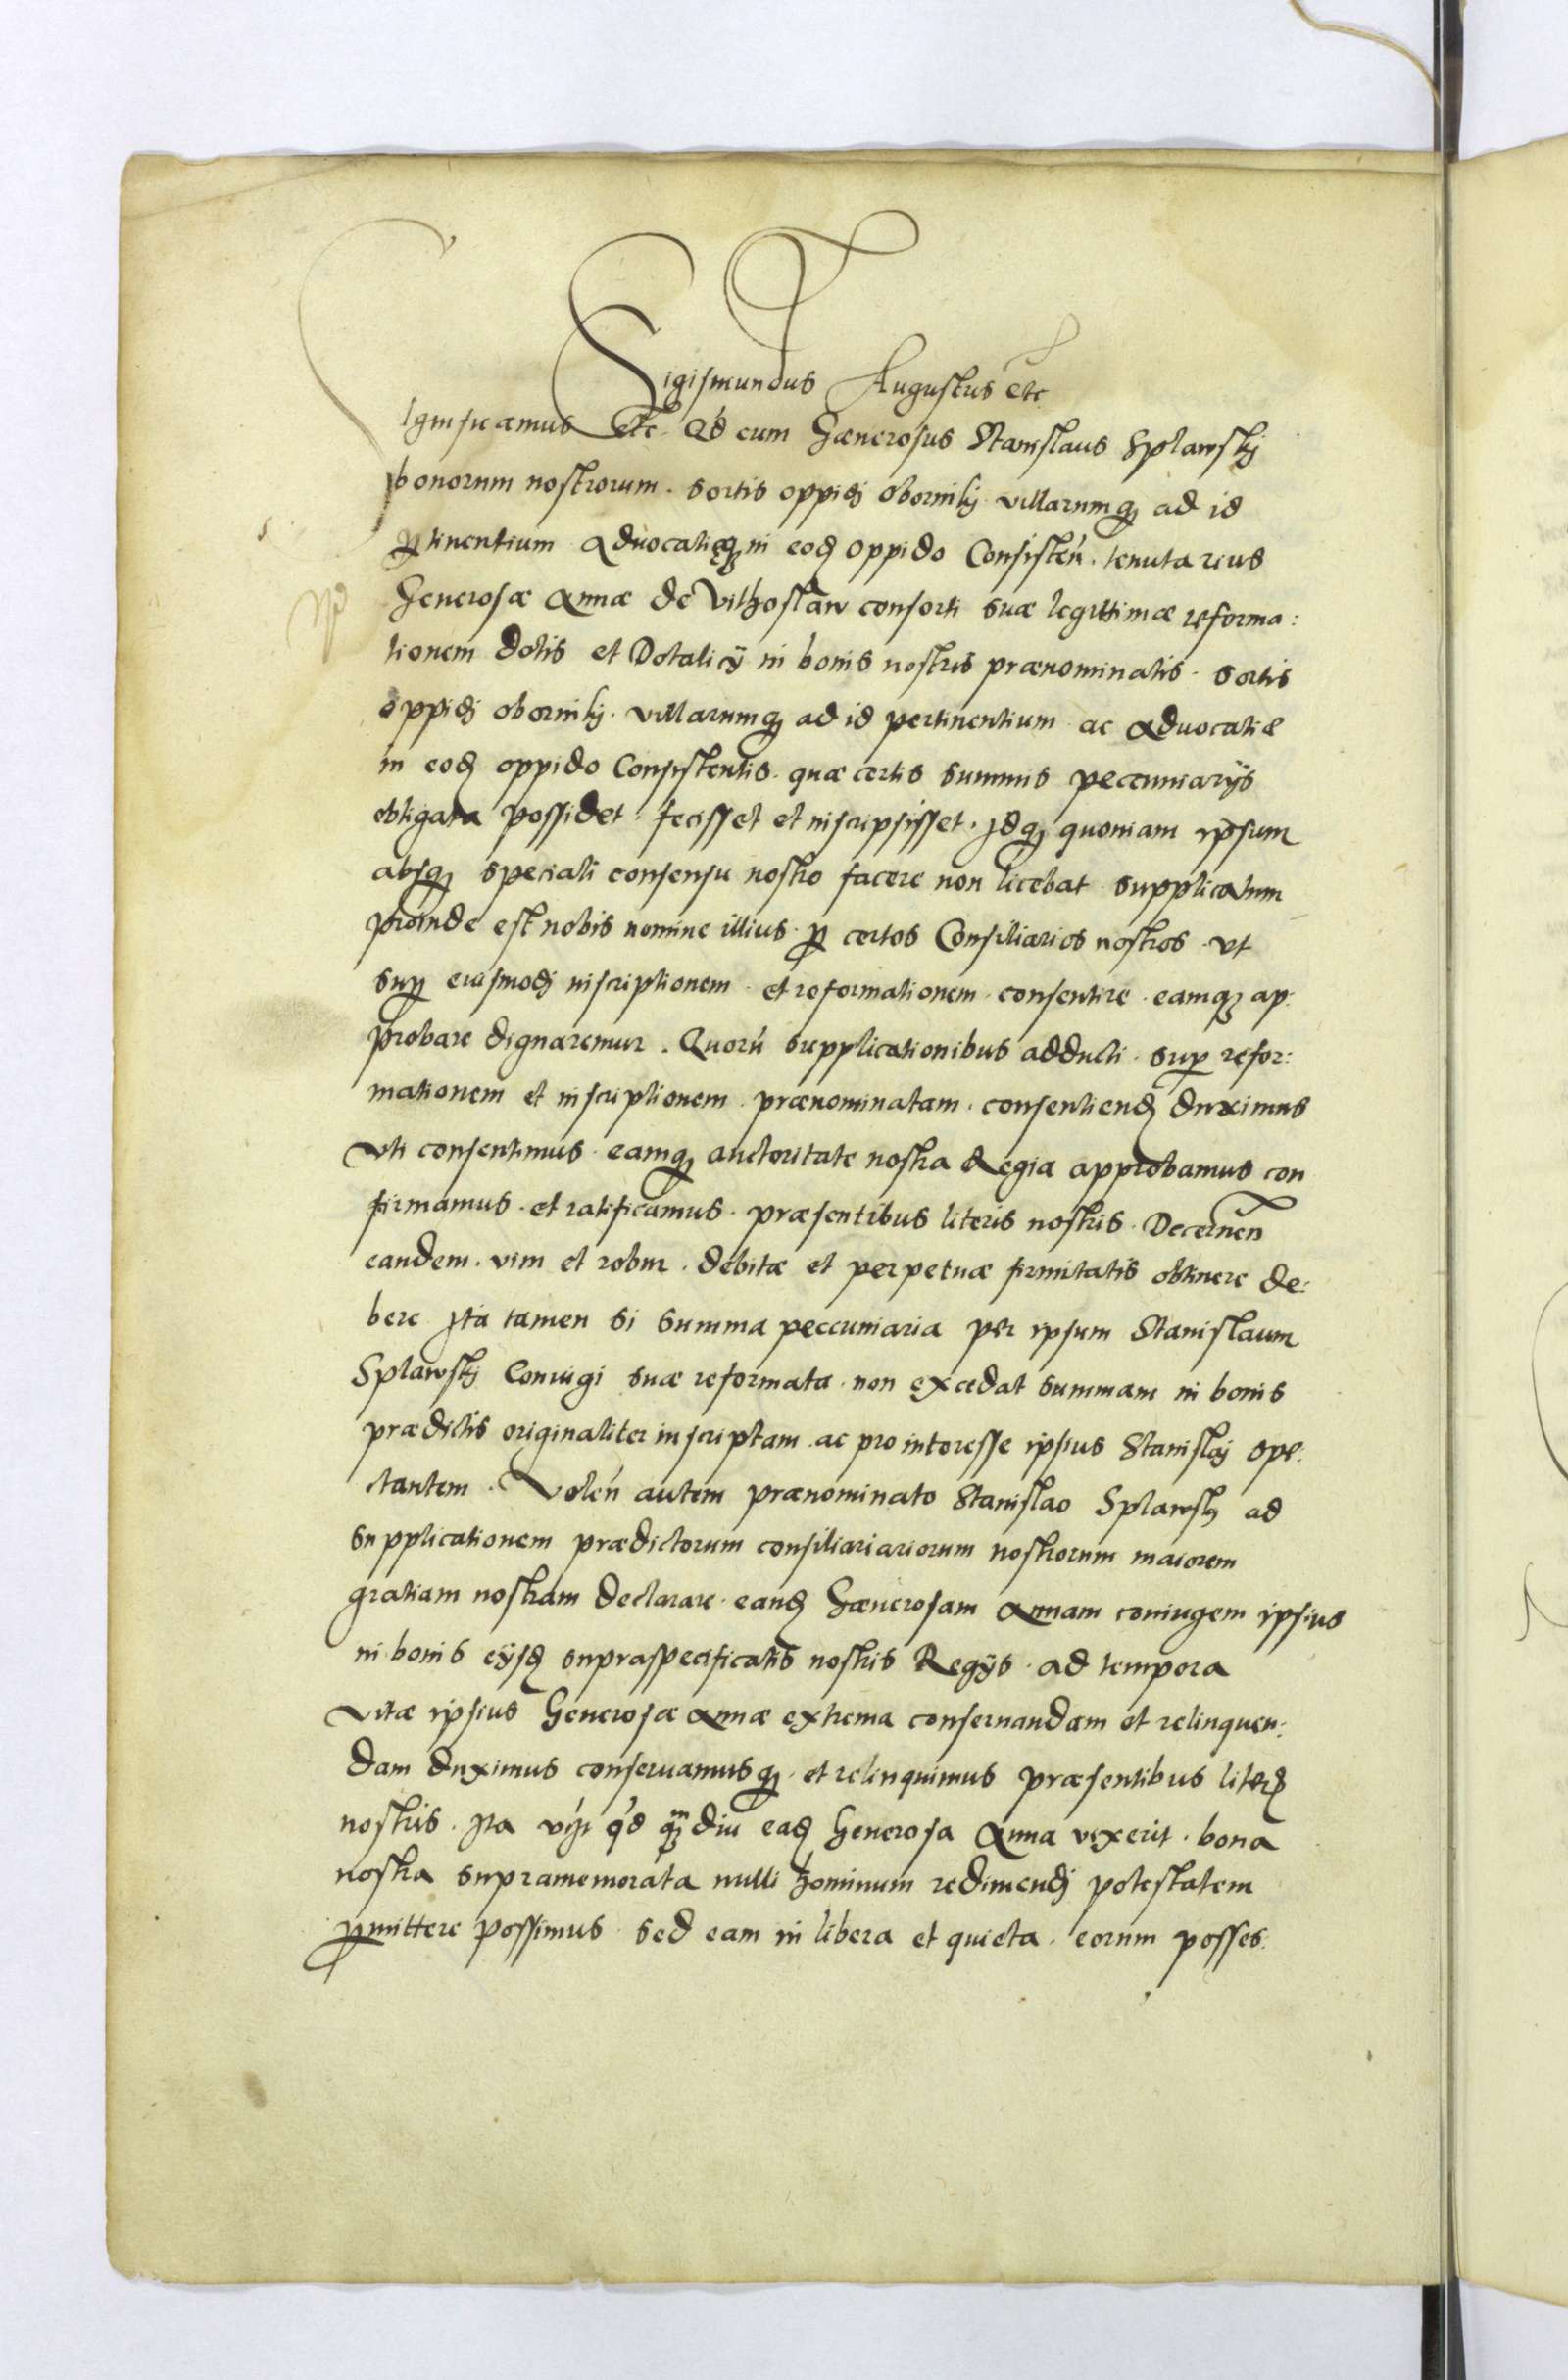 Sigismundus Augustus etc
Significamus etc. Qd cum Gænerosus Stanislaus Splawskj
bonorum nostrorum. sortis oppidj obornikj villarumq3 ad id
ꝑtinentium Aduocatięq3 in eod oppido Consisteñ. tenutarius
Generosæ Annæ de Vithoslaw consorti suæ legittimæ reforma:
tionem dotis et Dotalicÿ in bonis nostris prænominatis. sortis
oppidj obornikj. villarumq3 ad id pertinentium ac Aduocatiæ
in eod oppido Consistentis. quæ certis summis peccuniarÿs
obligata possidet. fecisset et inscripsisset. jdq3 quoniam ipsum
absq3 speciali consensu nostro facere non licebat supplicatum
proinde est nobis nomine illius. ꝑ certos Consiliarios nostros. vt
suꝑ eiusmodj inscriptionem. et reformationem. consentire. eamq3 ap:
probare dignaremur. Quorũ supplicationibus adducti. suꝑ refor:
mationem et inscriptionem. prænominatam. consentiend duximus
vti consentimus. eamq3 auctoritate nostra Regia approbamus con
firmamus. et ratificamus. præsentibus literis nostris. Decerneñ
eandem. vim et robur. debitæ et perpetuæ firmitatis obtinere de:
bere jta tamen si summa peccuniaria per ipsum Stanislaum
Splawskj Coniugi suæ reformata. non excedat summam in bonis
prædictis originaliter inscriptam. ac pro interesse ipsius Stanislaj spe:
ctantem. Voleñ autem prænominato Stanislao Splawskj ad
supplicationem prædictorum consiliariariorum nostrorum maiorem
gratiam nostram declarare. eand Gænerosam Annam coniugem ipsius
in bonis eÿsd supraspecificatis nostris Regÿs. ad tempora
vitæ ipsius Generosæ Annæ extrema conseruandam et relinquen:
dam duximus conseruamusq3. et relinquimus præsentibus literꝭ
nostris. jta qd diu ead Generosa Anna vixerit. bona
nostra supramemorata nulli hominum redimendj potestatem
ꝑmittere possimus. sed eam in libera et quieta. eorum posses: